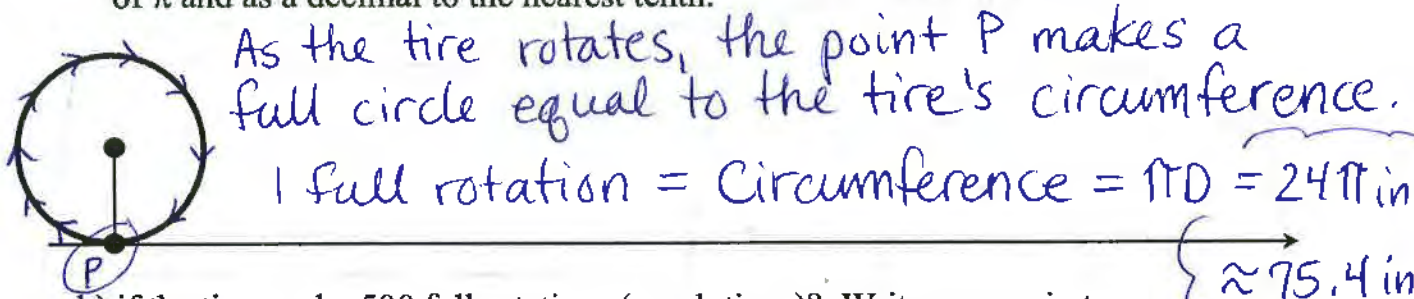 of π and as a decimal to the nearest tenth.
As the tire rotates, the point P makes a
full circle equal to the tire's circumference.
1 full rotation = Circumference = πD = 24π in
P
≈ 75.4 in